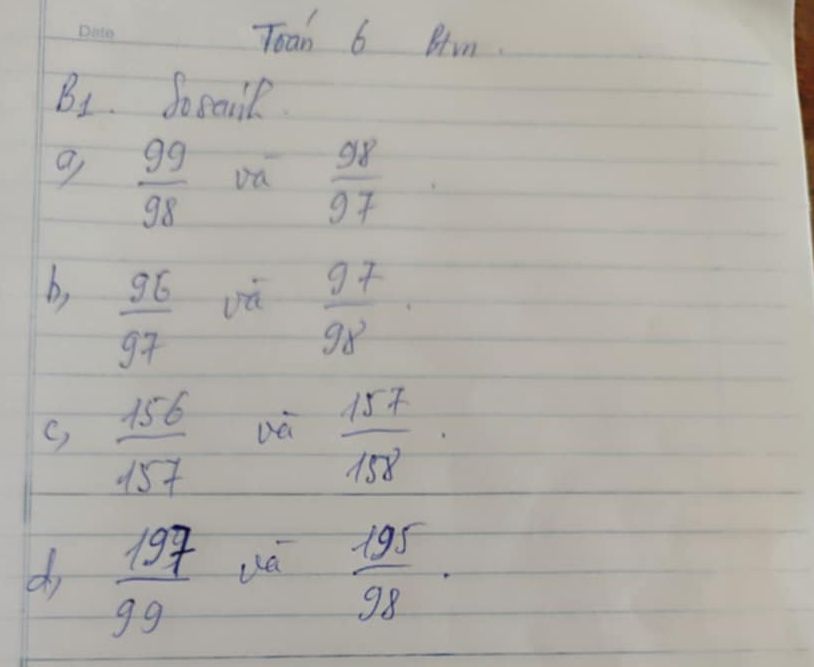 Date
Toán 6 Btvn.
B1. So sánh.
a, 99/98 và 98/97.
b, 96/97 và 97/98.
c, 156/157 và 157/158.
d, 197/99 và 195/98.